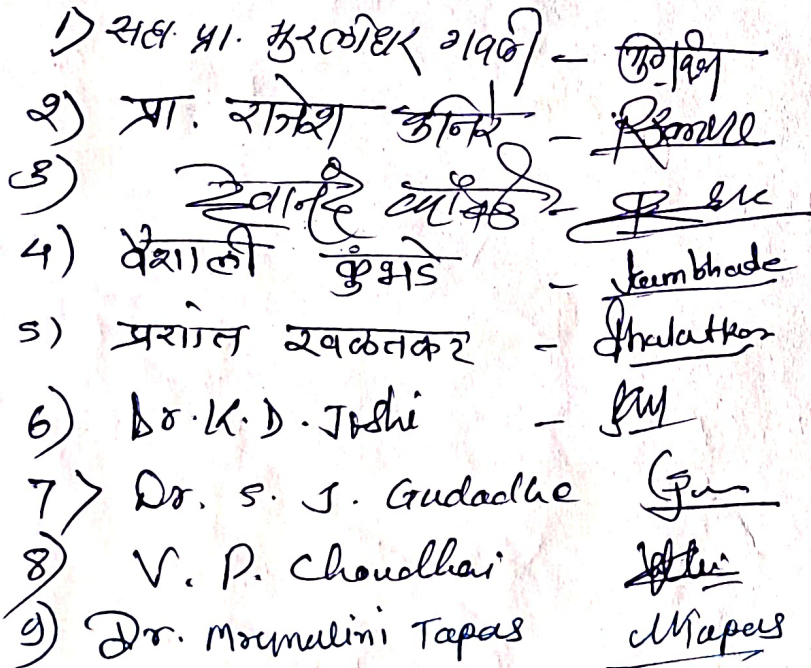 1) सह. प्रा. मुरलीधर गवळी -
२) प्रा. राजेश -
३) देवानंद -
4) वैशाली कुंभडे - Kumbhade
5) प्रशांत खळतकर - Khalatkar
6) Dr. K. D. Joshi -
7) Dr. S. J. Gudadhe
8) V. P. Choudhari
9) Dr. Mrunalini Tapas MTapas